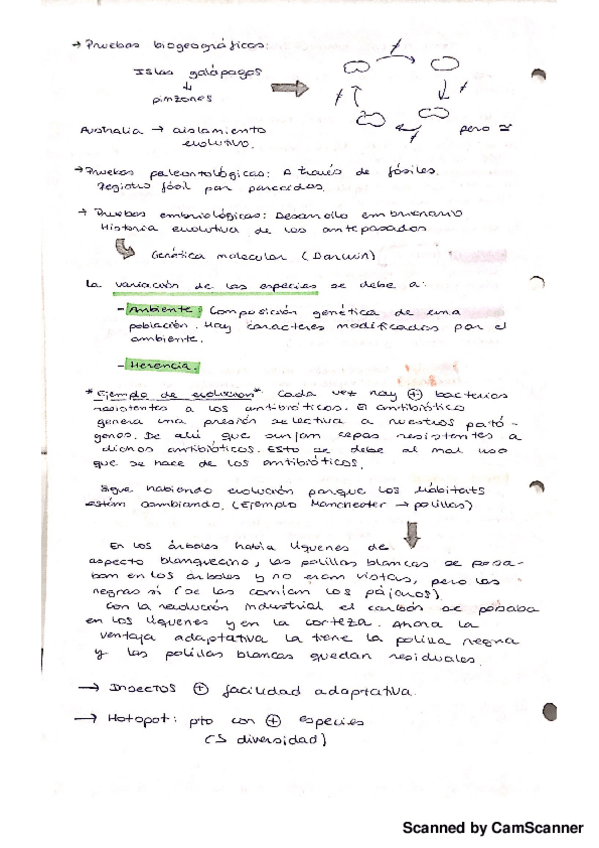 → Pruebas biogeográficas:
Islas galápagos
↓
pinzones
Australia → aislamiento
evolutivo.
pero ≃
→ Pruebas paleontológicas: A través de fósiles.
Registro fósil por parecidos.
→ Pruebas embriológicas: Desarrollo embrionario
Historia evolutiva de los antepasados
Genética molecular (Darwin)
La variación de las especies se debe a:
- Ambiente: Composición genética de una
población. Hay caracteres modificados por el
ambiente.
- Herencia.
*Ejemplo de evolución* Cada vez hay ⊕ bacterias
resistentes a los antibióticos. El antibiótico
genera una presión selectiva a nuestros pató-
genos. De ahí que surjan cepas resistentes a
dichos antibióticos. Esto se debe al mal uso
que se hace de los antibióticos.
Sigue habiendo evolución porque los hábitats
están cambiando. (Ejemplo Manchester → polillas)
En los árboles había líquenes de
aspecto blanquecino, las polillas blancas se posa-
ban en los árboles y no eran vistas, pero las
negras sí (se las comían los pájaros)
Con la revolución industrial el carbón se posaba
en los líquenes y en la corteza. Ahora la
ventaja adaptativa la tiene la polilla negra
y las polillas blancas quedan residuales.
→ Insectos ⊕ facilidad adaptativa.
→ Hotopot: pto con ⊕ especies
(S diversidad)
Scanned by CamScanner